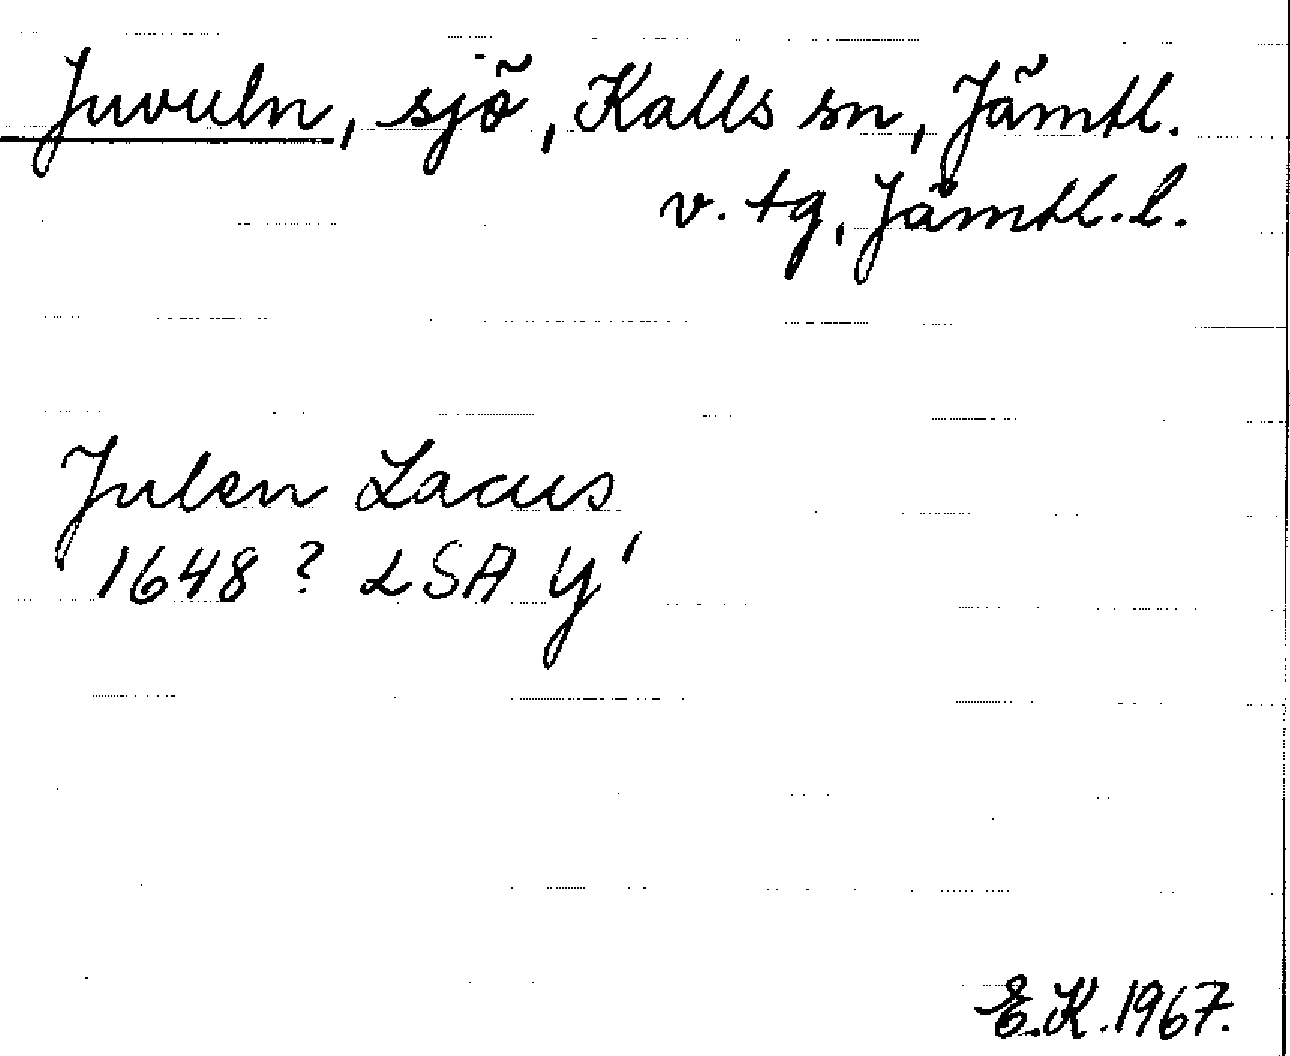 Juvuln, sjö, Kalls sn, Jämtl.
v. tg, Jämtl. l.
Julen Lacus
1648? LSA y'
E.K. 1967.